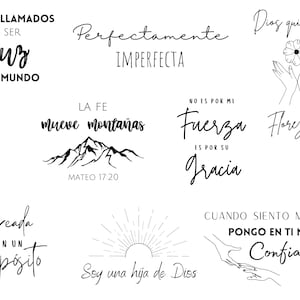 LLAMADOS
SER
luz
MUNDO
Perfectamente
IMPERFECTA
Dios
LA FE
mueve montañas
MATEO 17:20
NO ES POR MI
Fuerza
ES POR SU
Gracia
Soy una hija de Dios
CUANDO SIENTO
PONGO EN TI